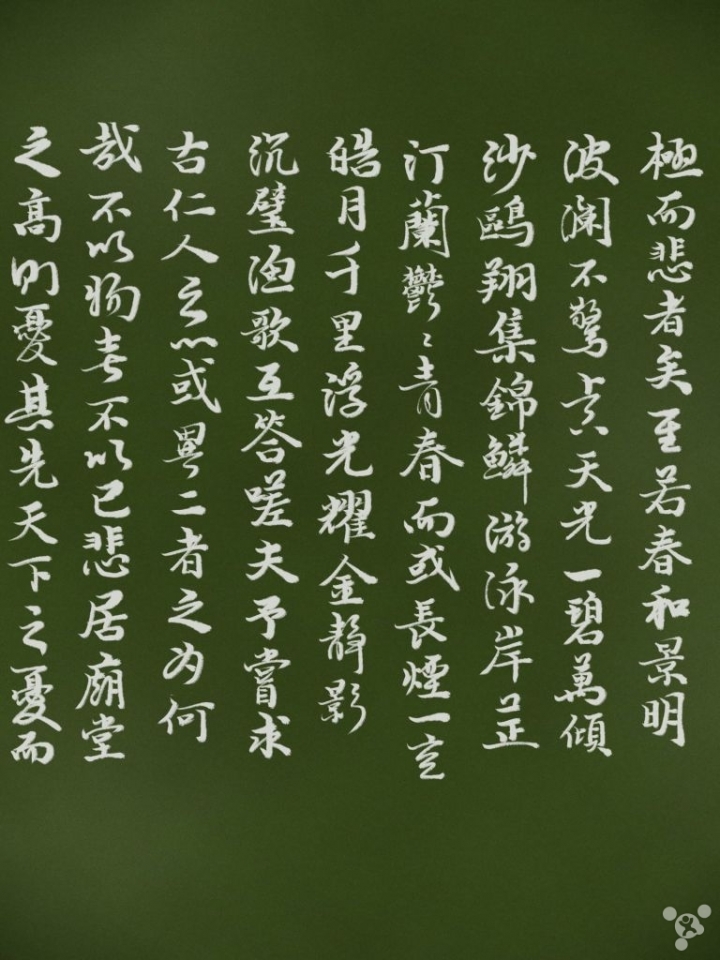 極而悲者矣至若春和景明
波澜不驚上下天光一碧萬傾
沙鷗翔集錦鱗游泳岸芷
汀蘭鬱〻青春而或長煙一空
皓月千里浮光耀金靜影
沉璧漁歌互答嗟夫予嘗求
古仁人之心或異二者之为何
哉不以物喜不以己悲居廟堂
之高則憂其先天下之憂而